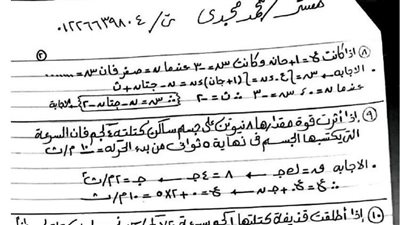 مستر / محمد مجدى ت / ٠١٢٢٦٦٣٩٨٠٤
٣
٨) إذا كانت ع = ١ + جا ن وكانت س = -٣ عندما ن = صفر فإن س = ........
الاجابه - س = ∫ع.ءن = ∫(١ + جان)ءن = ن - جتان + ث
عندما ن = ٠، س = -٣ ∴ ث = -٢ ∴ س = ن - جتان - ٢
٩) إذا أثرت قوة مقدارها ٨ نيوتن على جسم ساكن كتلته ٤ كجم فان السرعة
التى يكتسبها الجسم فى نهاية ٥ ثوانى من بدء الحركه = ١٠ م/ث
الاجابه ق = ك ج ← ٨ = ٤ ج ← ج = ٢ م/ث²
∴ ع = ع. + ج ن ← ع = ٠ + ٢×٥ = ١٠ م/ث
١٠) إذا أطلقت قذيفة كتلتها ١ كجم بسرعة